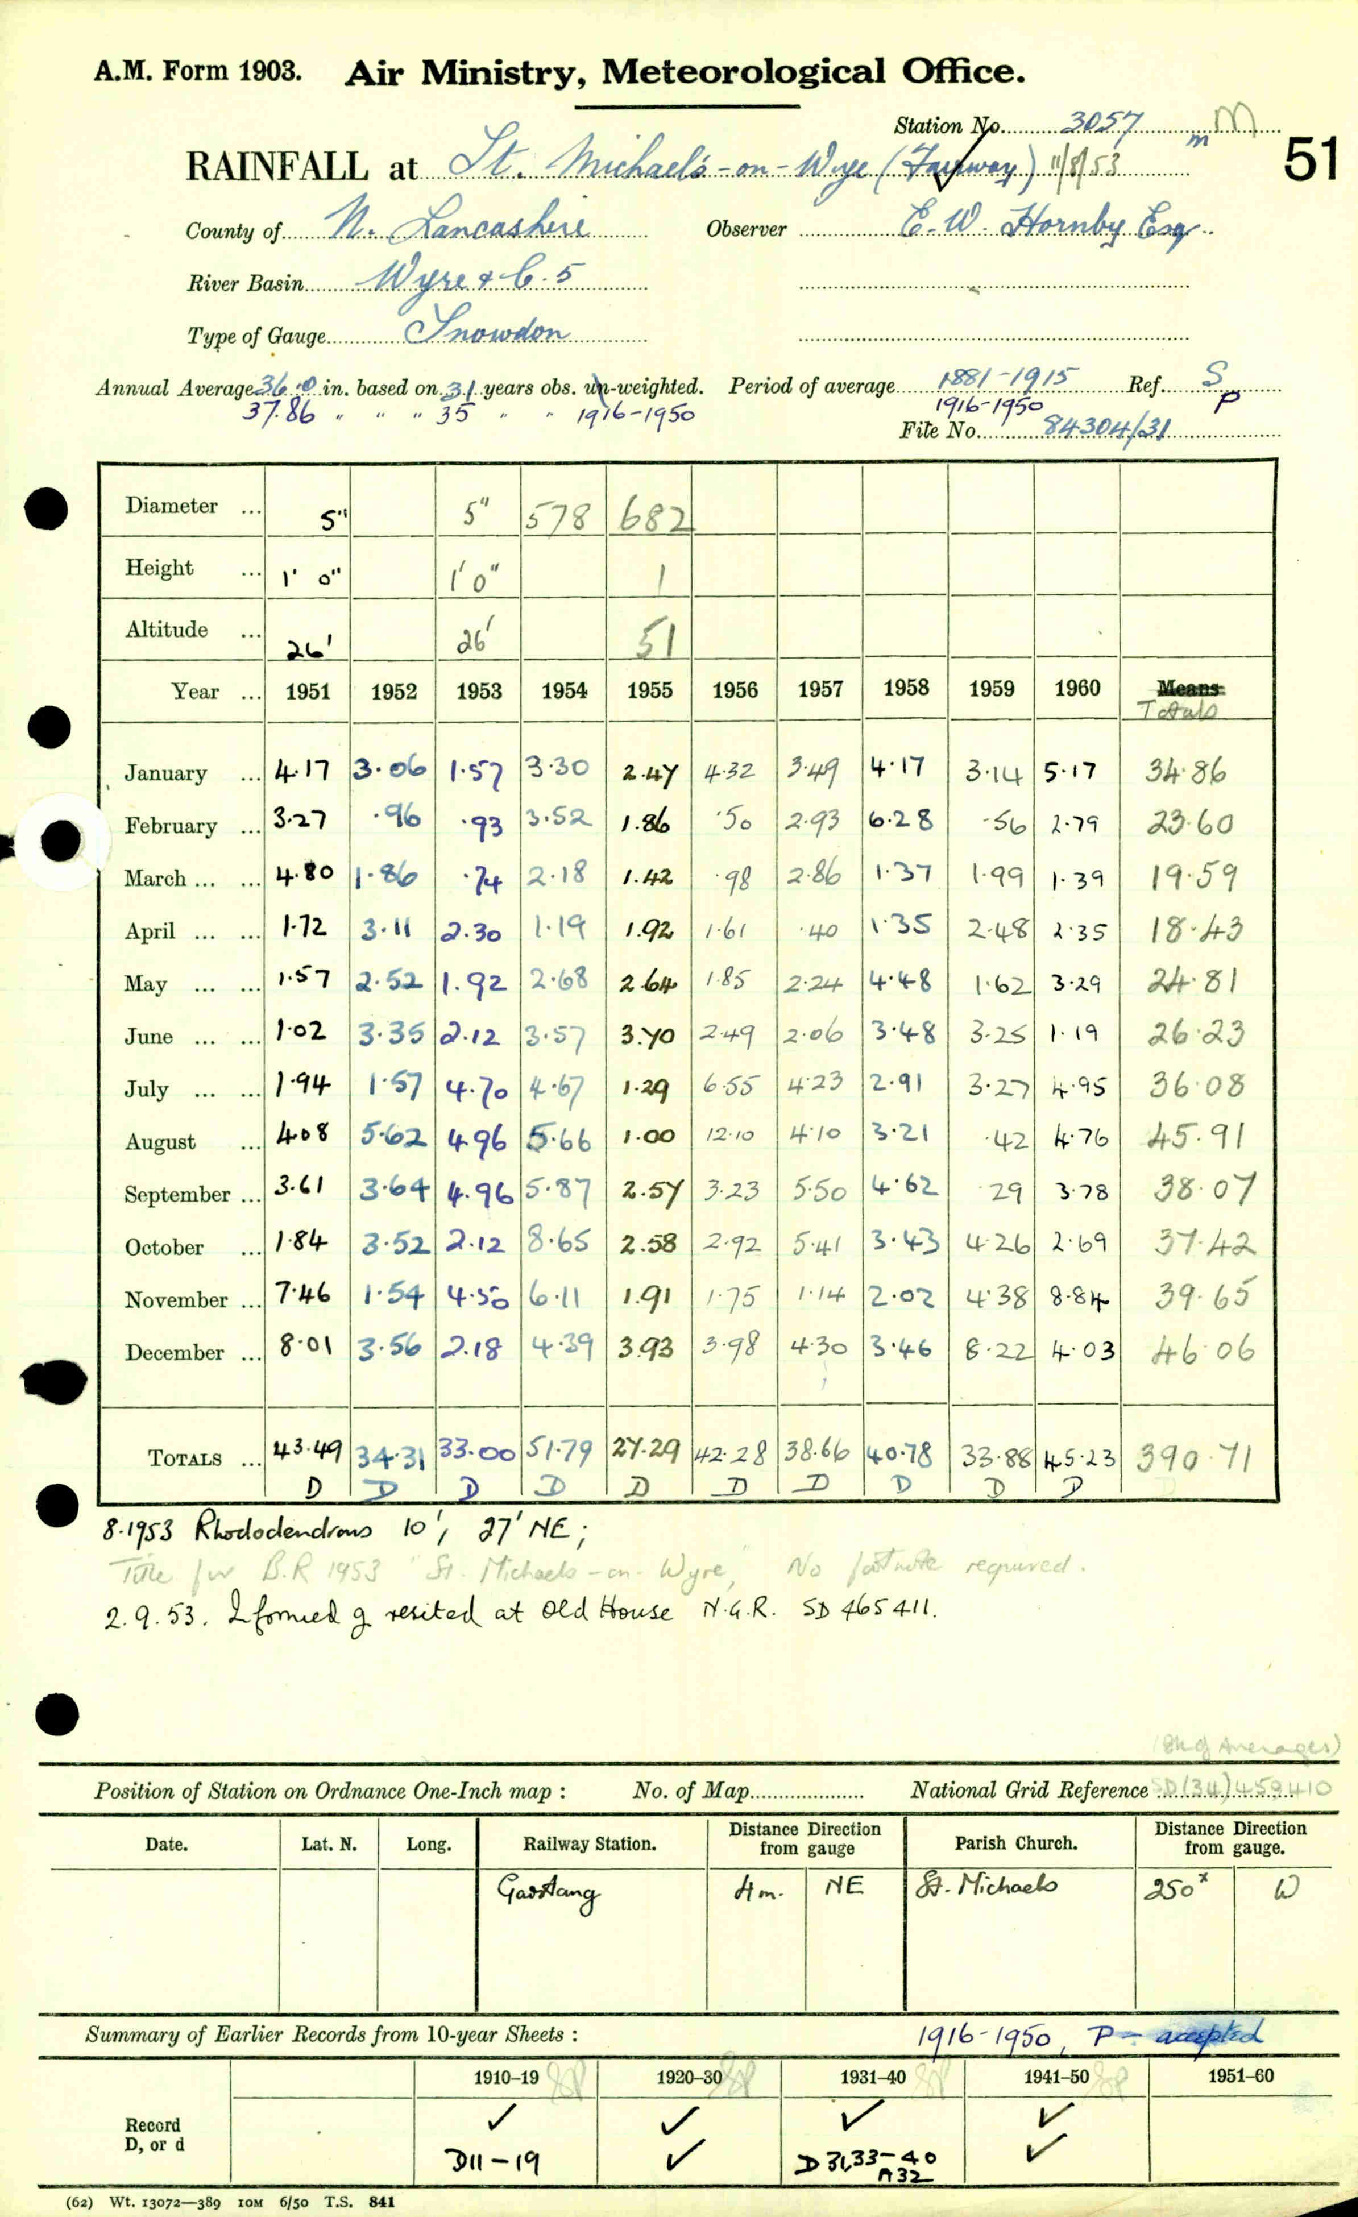 A.M. Form 1903. Air Ministry, Meteorological Office.
Station No. 3057 m M
RAINFALL at St. Michael's-on-Wyre (Fairway) 11/8/53 51
County of N. Lancashire Observer E. W. Hornby Esq
River Basin Wyre & C. 5
Type of Gauge Snowdon
Annual Average 36.0 in. based on 31 years obs. un-weighted. Period of average 1881-1915 Ref. S
37.86 " " " 35 " " 1916-1950 1916-1950 P
File No. 84304/31
Diameter ... 5" 5" 578 682
Height ... 1' 0" 1' 0" 1
Altitude ... 26' 26' 51
Year ... 1951 1952 1953 1954 1955 1956 1957 1958 1959 1960 Means
Totals
January ... 4.17 3.06 1.57 3.30 2.47 4.32 3.49 4.17 3.14 5.17 34.86
February ... 3.27 .96 .93 3.52 1.86 .50 2.93 6.28 .56 2.79 23.60
March ... ... 4.80 1.86 .74 2.18 1.42 .98 2.86 1.37 1.99 1.39 19.59
April ... ... 1.72 3.11 2.30 1.19 1.92 1.61 .40 1.35 2.48 2.35 18.43
May ... ... 1.57 2.52 1.92 2.68 2.64 1.85 2.24 4.48 1.62 3.29 24.81
June ... ... 1.02 3.35 2.12 3.57 3.70 2.49 2.06 3.48 3.25 1.19 26.23
July ... ... 1.94 1.57 4.70 4.67 1.29 6.55 4.23 2.91 3.27 4.95 36.08
August ... 4.08 5.62 4.96 5.66 1.00 12.10 4.10 3.21 .42 4.76 45.91
September ... 3.61 3.64 4.96 5.87 2.57 3.23 5.50 4.62 .29 3.78 38.07
October ... 1.84 3.52 2.12 8.65 2.58 2.92 5.41 3.43 4.26 2.69 37.42
November ... 7.46 1.54 4.50 6.11 1.91 1.75 1.14 2.02 4.38 8.84 39.65
December ... 8.01 3.56 2.18 4.39 3.93 3.98 4.30 3.46 8.22 4.03 46.06
TOTALS ... 43.49 34.31 33.00 51.79 27.29 42.28 38.66 40.78 33.88 45.23 390.71
D D D D D D D D D D
8.1953 Rhododendrons 10', 27' NE;
Title for B.R 1953 "St. Michaels-on-Wyre," No footnote required.
2.9.53. Informed g resited at Old House N.G.R. SD 465411.
(Bk of Averages)
Position of Station on Ordnance One-Inch map : No. of Map National Grid Reference SD(34)459410
Date. Lat. N. Long. Railway Station. Distance from Direction gauge Parish Church. Distance from Direction gauge.
Garstang 4m. NE St. Michaels 250ˣ W
Summary of Earlier Records from 10-year Sheets : 1916-1950, P - accepted
1910–19 1920–30 1931–40 1941–50 1951–60
Record ✓ ✓ ✓ ✓
D, or d D11-19 ✓ D31,33-40 ✓
A32
(62) Wt. 13072—389 10M 6/50 T.S. 841